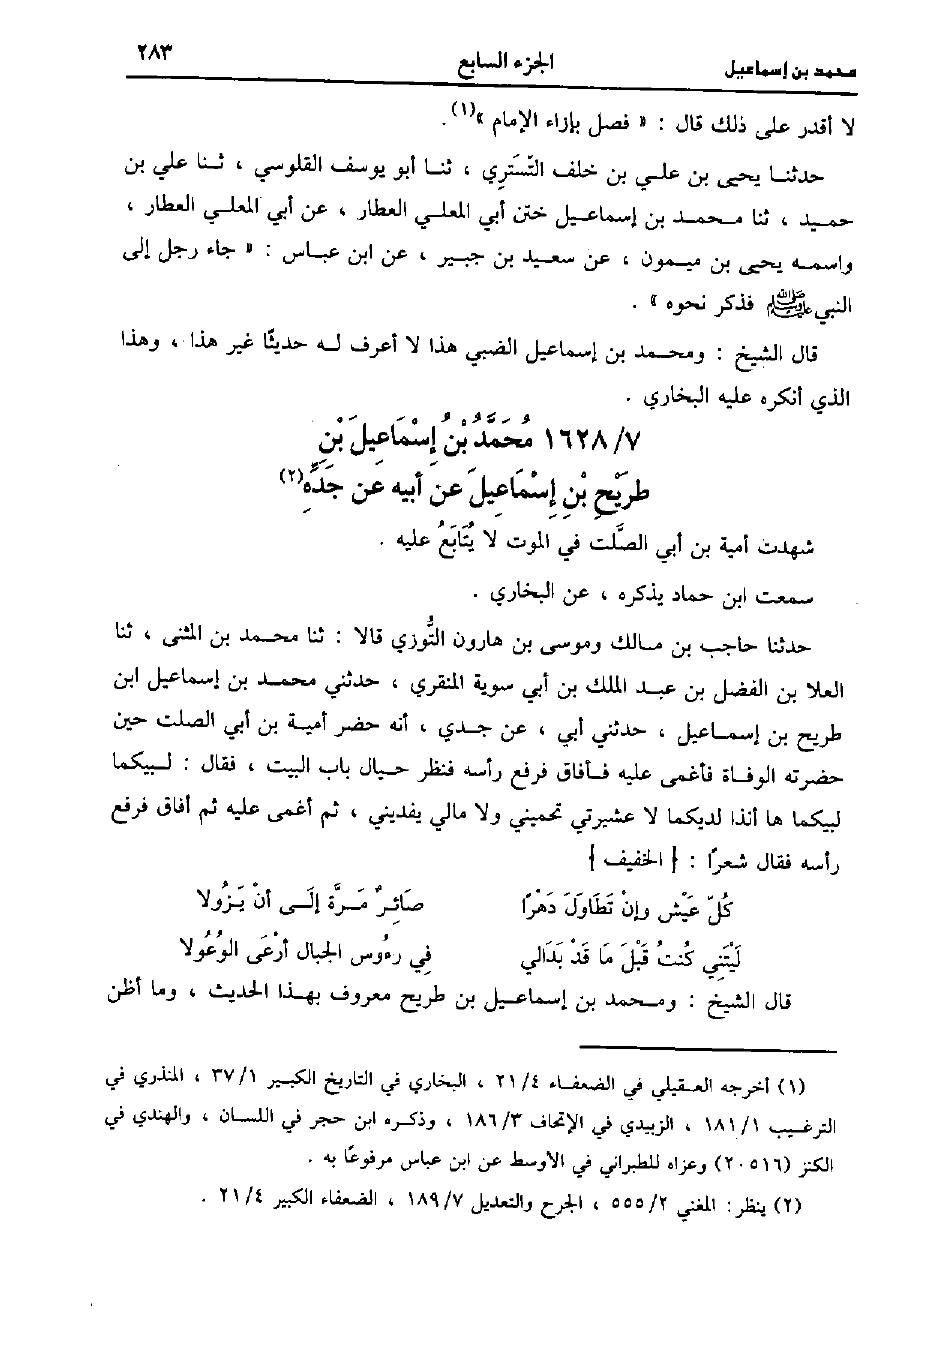 محمد بن إسماعيل الجزء السابع ٢٨٣
لا أقدر على ذلك قال : « فصل بإزاء الإمام »(١).
حدثنا يحيى بن علي بن خلف التُّسْتَرِي ، ثنا أبو يوسف القلوسي ، ثنا علي بن
حميد ، ثنا محمد بن إسماعيل ختن أبي المعلي العطار ، عن أبي المعلي العطار ،
واسمه يحيى بن ميمون ، عن سعيد بن جبير ، عن ابن عباس : « جاء رجل إلى
النبي ﷺ فذكر نحوه » .
قال الشيخ : ومحمد بن إسماعيل الضبي هذا لا أعرف له حديثًا غير هذا ، وهذا
الذي أنكره عليه البخاري .
١٦٢٨/٧ مُحَمَّدُ بْنُ إِسْمَاعِيلَ بْنِ
طَرِيْحِ بْنِ إِسْمَاعِيلَ عن أبيه عن جَدِّهِ(٢)
شهدت أمية بن أبي الصَّلت في الموت لا يُتَابَعُ عليه .
سمعت ابن حماد يذكره ، عن البخاري .
حدثنا حاجب بن مالك وموسى بن هارون التُّوزي قالا : ثنا محمد بن المثنى ، ثنا
العلا بن الفضل بن عبد الملك بن أبي سوية المنقري ، حدثني محمد بن إسماعيل ابن
طريح بن إسماعيل ، حدثني أبي ، عن جدي ، أنه حضر أمية بن أبي الصلت حين
حضرته الوفاة فأغمى عليه فأفاق فرفع رأسه فنظر حيال باب البيت ، فقال : لبيكما
لبيكما ها أنذا لديكما لا عشيرتي تحميني ولا مالي يفديني ، ثم أغمى عليه ثم أفاق فرفع
رأسه فقال شعرًا : { الخفيف }
كُلّ عَيْش وإنْ تَطَاوَلَ دَهْرًا صَائِرٌ مَرَّة إلَى أنْ يَزُولا
لَيْتَنِي كُنتُ قَبْلَ مَا قَدْ بَدَالي فِي رءُوس الجبال أرْعَى الوُعُولا
قال الشيخ : ومحمد بن إسماعيل بن طريح معروف بهذا الحديث ، وما أظن
(١) أخرجه العقيلي في الضعفاء ٢١/٤ ، البخاري في التاريخ الكبير ٣٧/١ ، المنذري في
الترغيب ١٨١/١ ، الزبيدي في الإتحاف ١٨٦/٣ ، وذكره ابن حجر في اللسان ، والهندي في
الكنز (٢٠٥١٦) وعزاه للطبراني في الأوسط عن ابن عباس مرفوعًا به .
(٢) ينظر: المغني ٥٥٥/٢ ، الجرح والتعديل ١٨٩/٧ ، الضعفاء الكبير ٢١/٤ .